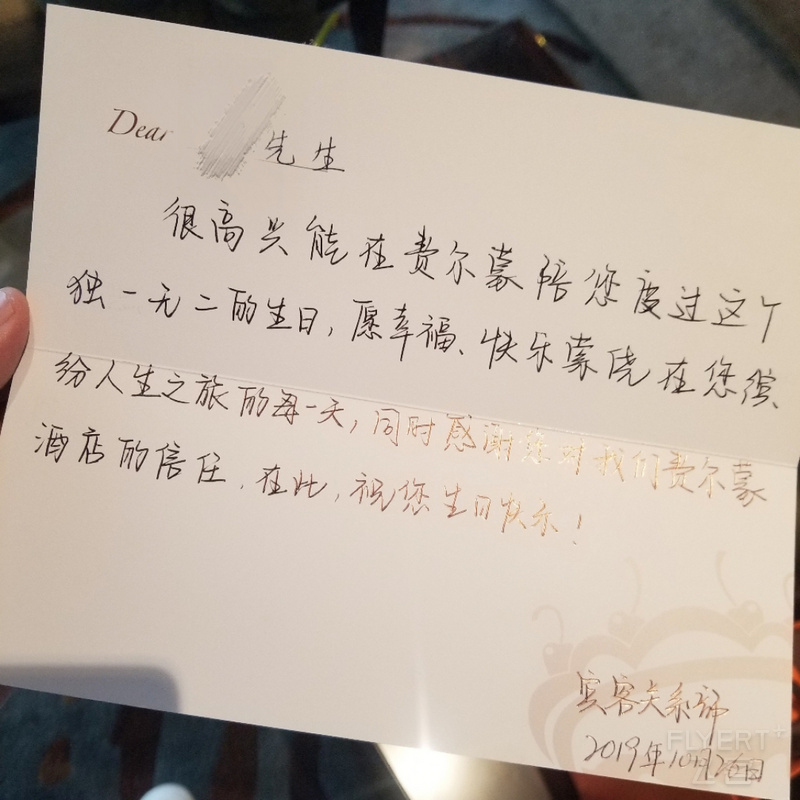 Dear 先生
很高兴能在费尔蒙陪您度过这个
独一无二的生日，愿幸福、快乐萦绕在您缤
纷人生之旅的每一天，同时感谢您对我们费尔蒙
酒店的信任．在此，祝您生日快乐！
宾客关系部
2019年10月26日
FLYERT